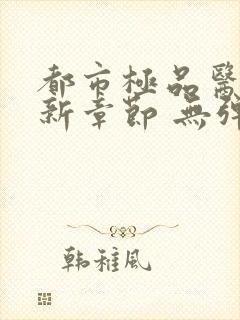 都市極品醫
新章節 無彈
韩稚風